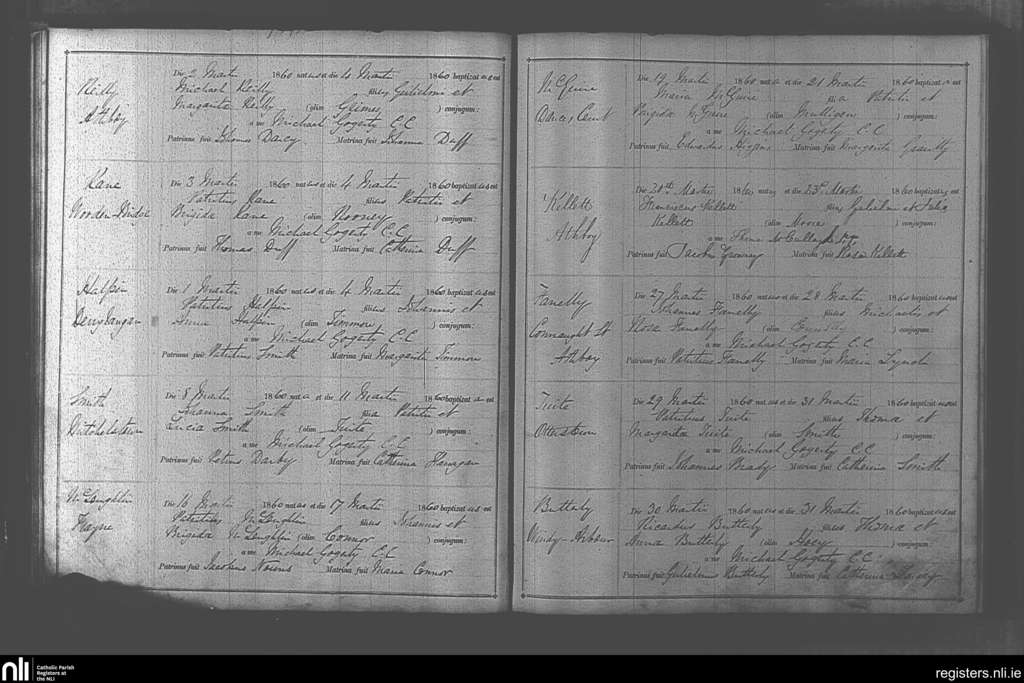 Reilly
Athboy
Die 2 Martii 1860 natus et die 4 Martii 1860 baptizatus est
Michael Reilly filius Gulielmi et
Margarita Reilly (olim Grimes) conjugum:
a me Michael Gogarty C.C
Patrinus fuit Thomas Darcy Matrina fuit Johanna Duff
Kane
Wooden-Bridge
Die 3 Martii 1860 natus et die 4 Martii 1860 baptizatus est
Patritius Kane filius Patritii et
Brigida Kane (olim Rooney) conjugum:
a me Michael Gogarty C.C.
Patrinus fuit Thomas Duff Matrina fuit Catherina Duff
Halpin
Die 1 Martii 1860 natus et die 4 Martii 1860 baptizatus est
Patritius Halpin filius Johannis et
Anna Halpin (olim Timmon) conjugum:
a me Michael Gogarty C.C
Patrinus fuit Patritius Smith Matrina fuit Margarita Timmon
Smith
Die 8 Martii 1860 nata et die 11 Martii 1860 baptizata est
Johanna Smith filia Patritii et
Lucia Smith (olim Tuite) conjugum:
a me Michael Gogarty C.C.
Patrinus fuit Petrus Darby Matrina fuit Catherina Flanagan
McLoughlin
Frayne
Die 16 Martii 1860 natus et die 17 Martii 1860 baptizatus est
Patritius McLoughlin filius Johannis et
Brigida McLoughlin (olim Connor) conjugum:
a me Michael Gogarty C.C
Patrinus fuit Jacobus Matrina fuit Maria Connor
McGuire
Die 19 Martii 1860 nata et die 21 Martii 1860 baptizata est
Maria McGuire filia Patritii et
Brigida McGuire (olim Mulligan) conjugum:
a me Michael Gogarty C.C.
Patrinus fuit Edwardus Higgins Matrina fuit Margarita
Kellett
Athboy
Die 20th Martii 1860 natus et die 23rd Martii 1860 baptizatus est
Franciscus Kellett filius Gulielmi et Julia
Kellett (olim Moore) conjugum:
a me Thoma McCullagh
Patrinus fuit Jacobus Matrina fuit Rosa Kellett
Fanelly
Connaught St
Athboy
Die 27 Martii 1860 natus et die 28 Martii 1860 baptizatus est
Johannes Fanelly filius Michaelis et
Rosa Fanelly (olim) conjugum:
a me Michael Gogarty C.C.
Patrinus fuit Patritius Fanelly Matrina fuit Maria Lynch
Tuite
Otterstown
Die 29 Martii 1860 natus et die 31 Martii 1860 baptizatus est
Patritius Tuite filius Thoma et
Margarita Tuite (olim Smith) conjugum:
a me Michael Gogarty C.C
Patrinus fuit Johannes Brady Matrina fuit Catherina Smith
Butterly
Windy-Arbour
Die 30 Martii 1860 natus et die 31 Martii 1860 baptizatus est
Ricardus Butterly filius Thoma et
Anna Butterly (olim Hoey) conjugum:
a me Michael Gogarty C.C.
Patrinus fuit Gulielmus Butterly Matrina fuit Catherina
nli Catholic Parish
Registers at
the NLI
registers.nli.ie